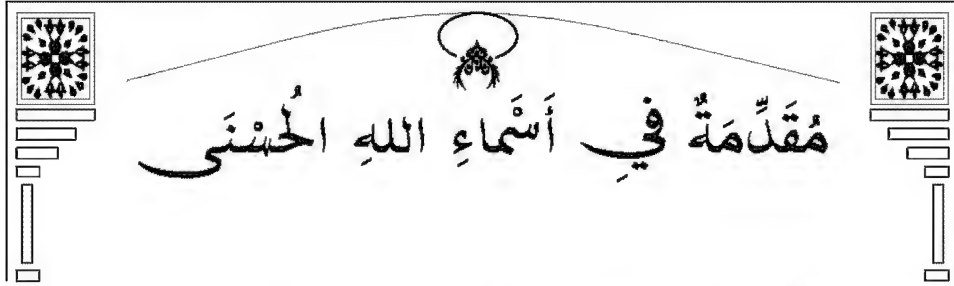 مُقَدِّمَةٌ فِي أَسْمَاءِ اللهِ الْحُسْنَى